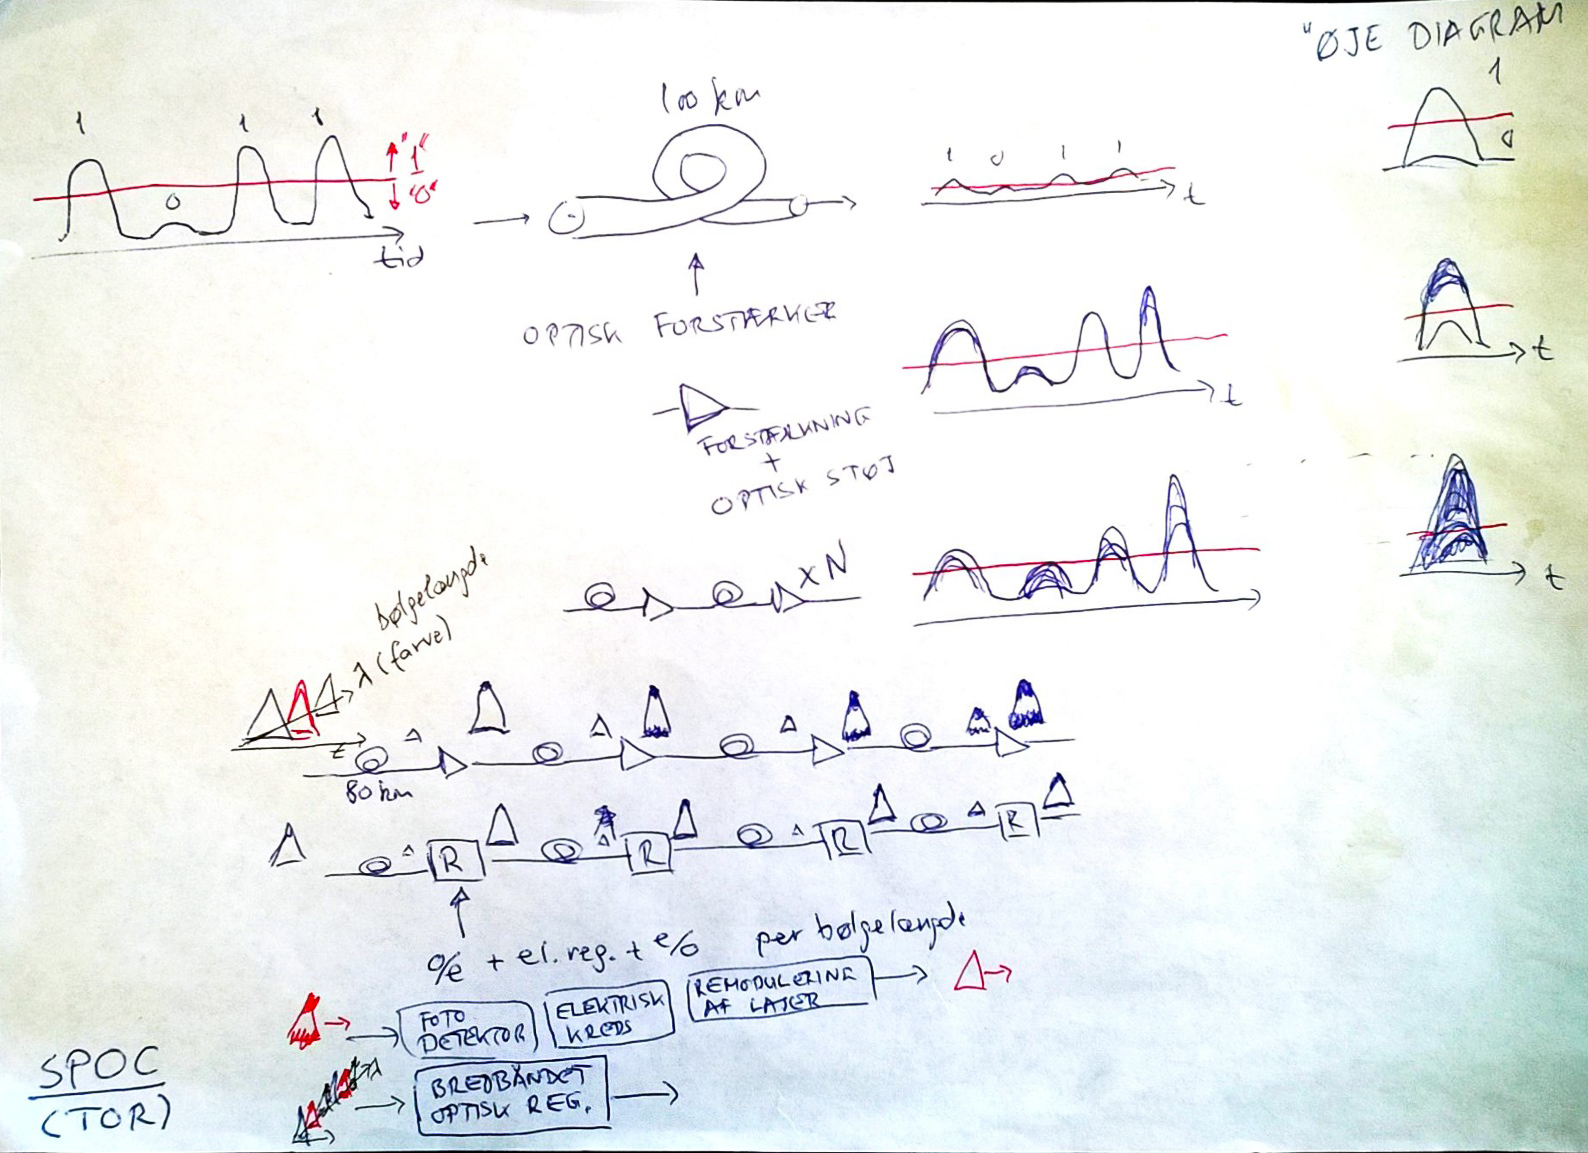 "ØJE DIAGRAM
1
0
1 0 1 1
"1"
"0"
tid
100 km
1 0 1 1
t
OPTISK FORSTÆRKER
t
t
FORSTÆRKNING
+
OPTISK STØJ
XN
t
bølgelængde
λ (farve)
t
80 km
R R R R
o/e + el. reg. + e/o per bølgelængde
FOTO
DETEKTOR
ELEKTRISK
KREDS
REMODULERING
AF LASER
λ
BREDBÅNDET
OPTISK REG.
SPOC
(TOR)